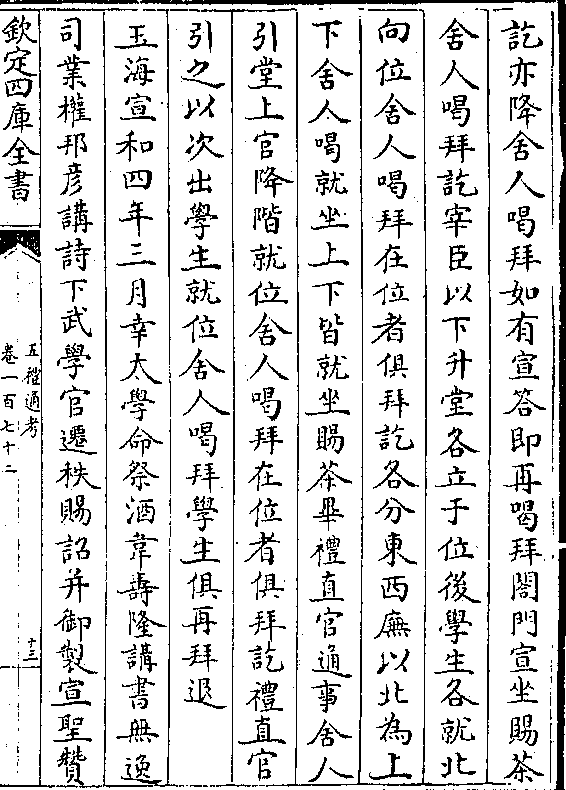 訖亦降舍人喝拜如有宣答即再喝拜閤門宣坐賜茶
舍人喝拜訖宰臣以下升堂各立于位後學生各就北
向位舍人喝拜在位者俱拜訖各分東西廡以北為上
下舍人喝就坐上下皆就坐賜茶畢禮直官通事舍人
引堂上官降階就位舍人喝拜在位者俱拜訖禮直官
引之以次出學生就位舍人喝拜學生俱再拜退
玉海宣和四年三月幸太學命祭酒韋壽隆講書無逸
司業權邦彦講詩下武學官遷秩賜詔并御製宣聖贊
欽定四庫全書
五禮通考
卷一百七十二
十三